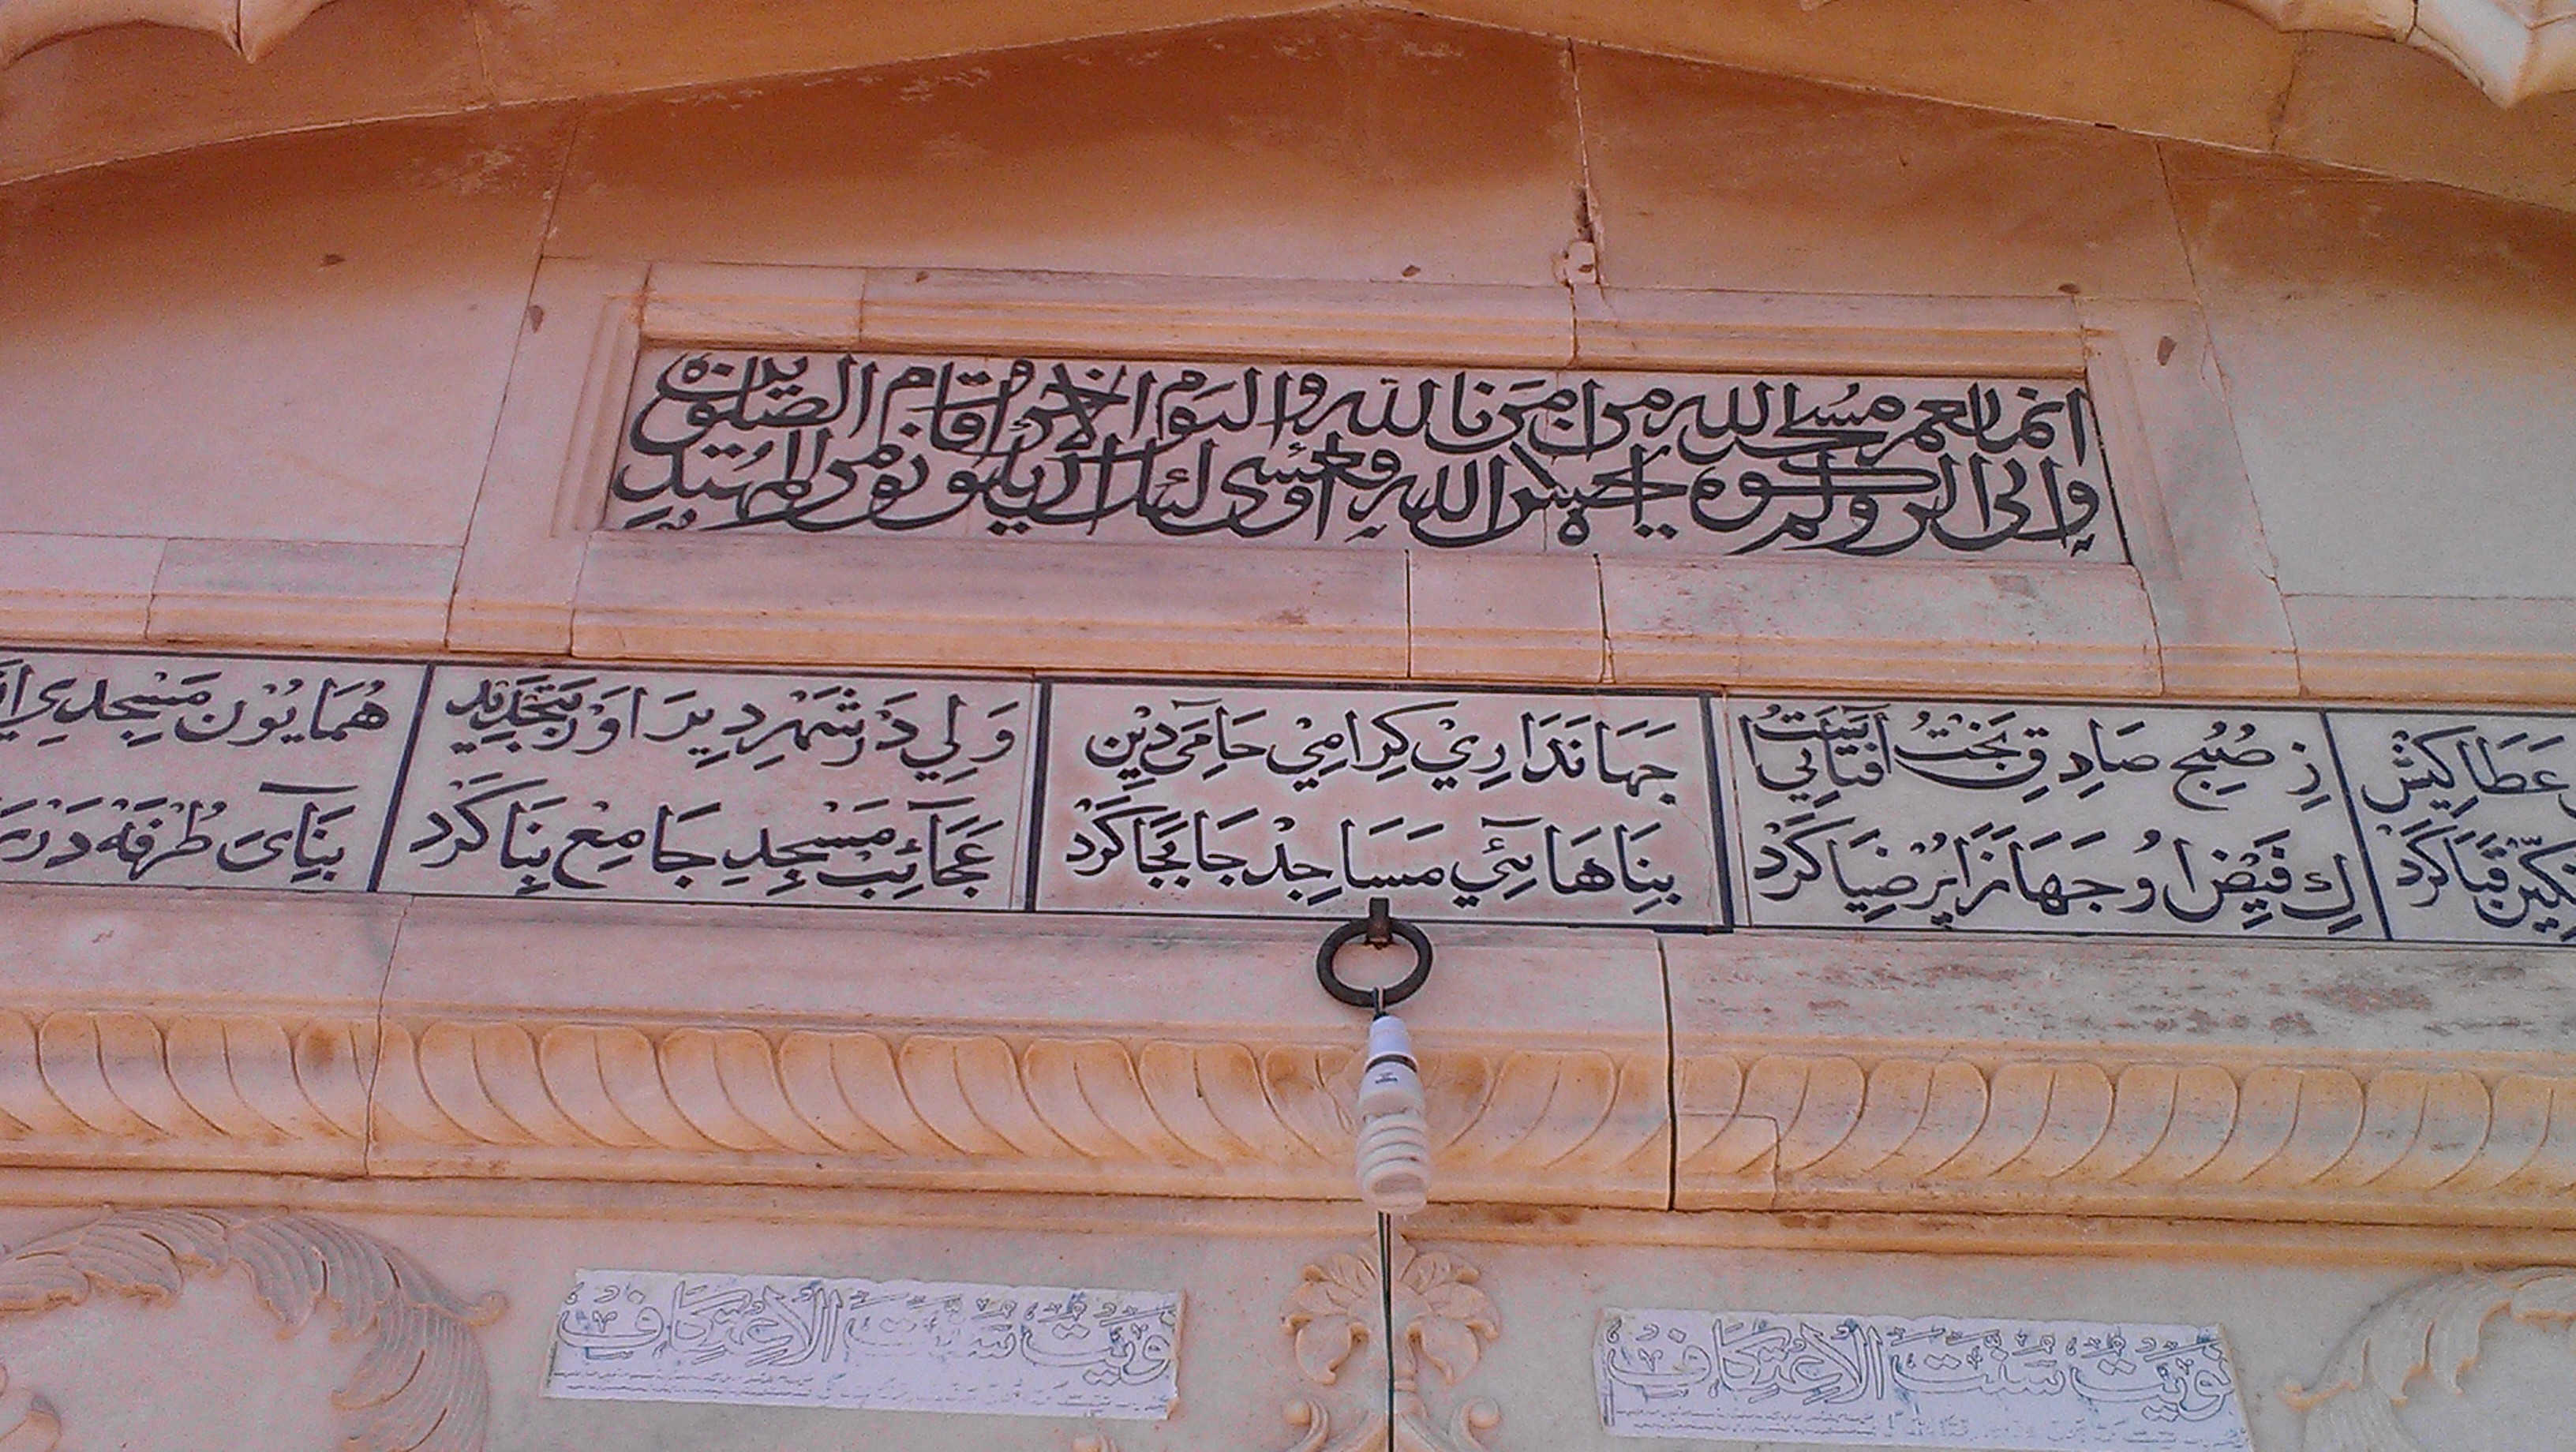 انما یعمر مسٰجد الله من اٰمن بالله والیوم الاٰخر واقام الصلوٰة
واٰتی الزکوٰة ولم یخش الا الله فعسٰی اولٰئك ان یکونوا من المهتدین
عَطَا كِيْش
زِ صُبْحِ صَادِقِ بَخْتُ آفْتَابِي
كِ فَيْضِ اُو جَهَانْرَا پُرْ ضِيَا كَرْدْ
جَهَانْدَارِيْ كِرَامِيْ حَامَىِٔ دِيْن
بِنَاهَائِيْ مَسَاجِدْ جَا بَجَا كَرْدْ
وَلِي دَرْ شَهْرِ دِيرَاوَرْ بَتَجْدِيد
عَجَآئِبْ مَسْجِدِ جَامِعْ بِنَا كَرْدْ
هُمَايُوْن مَسْجِدِى
بِنَآىِٔ طُرْفَهْ دَرْ
نَوَيْتُ سُنَّتَ الْاِعْتِكَافِ
نَوَيْتُ سُنَّتَ الْاِعْتِكَافِ